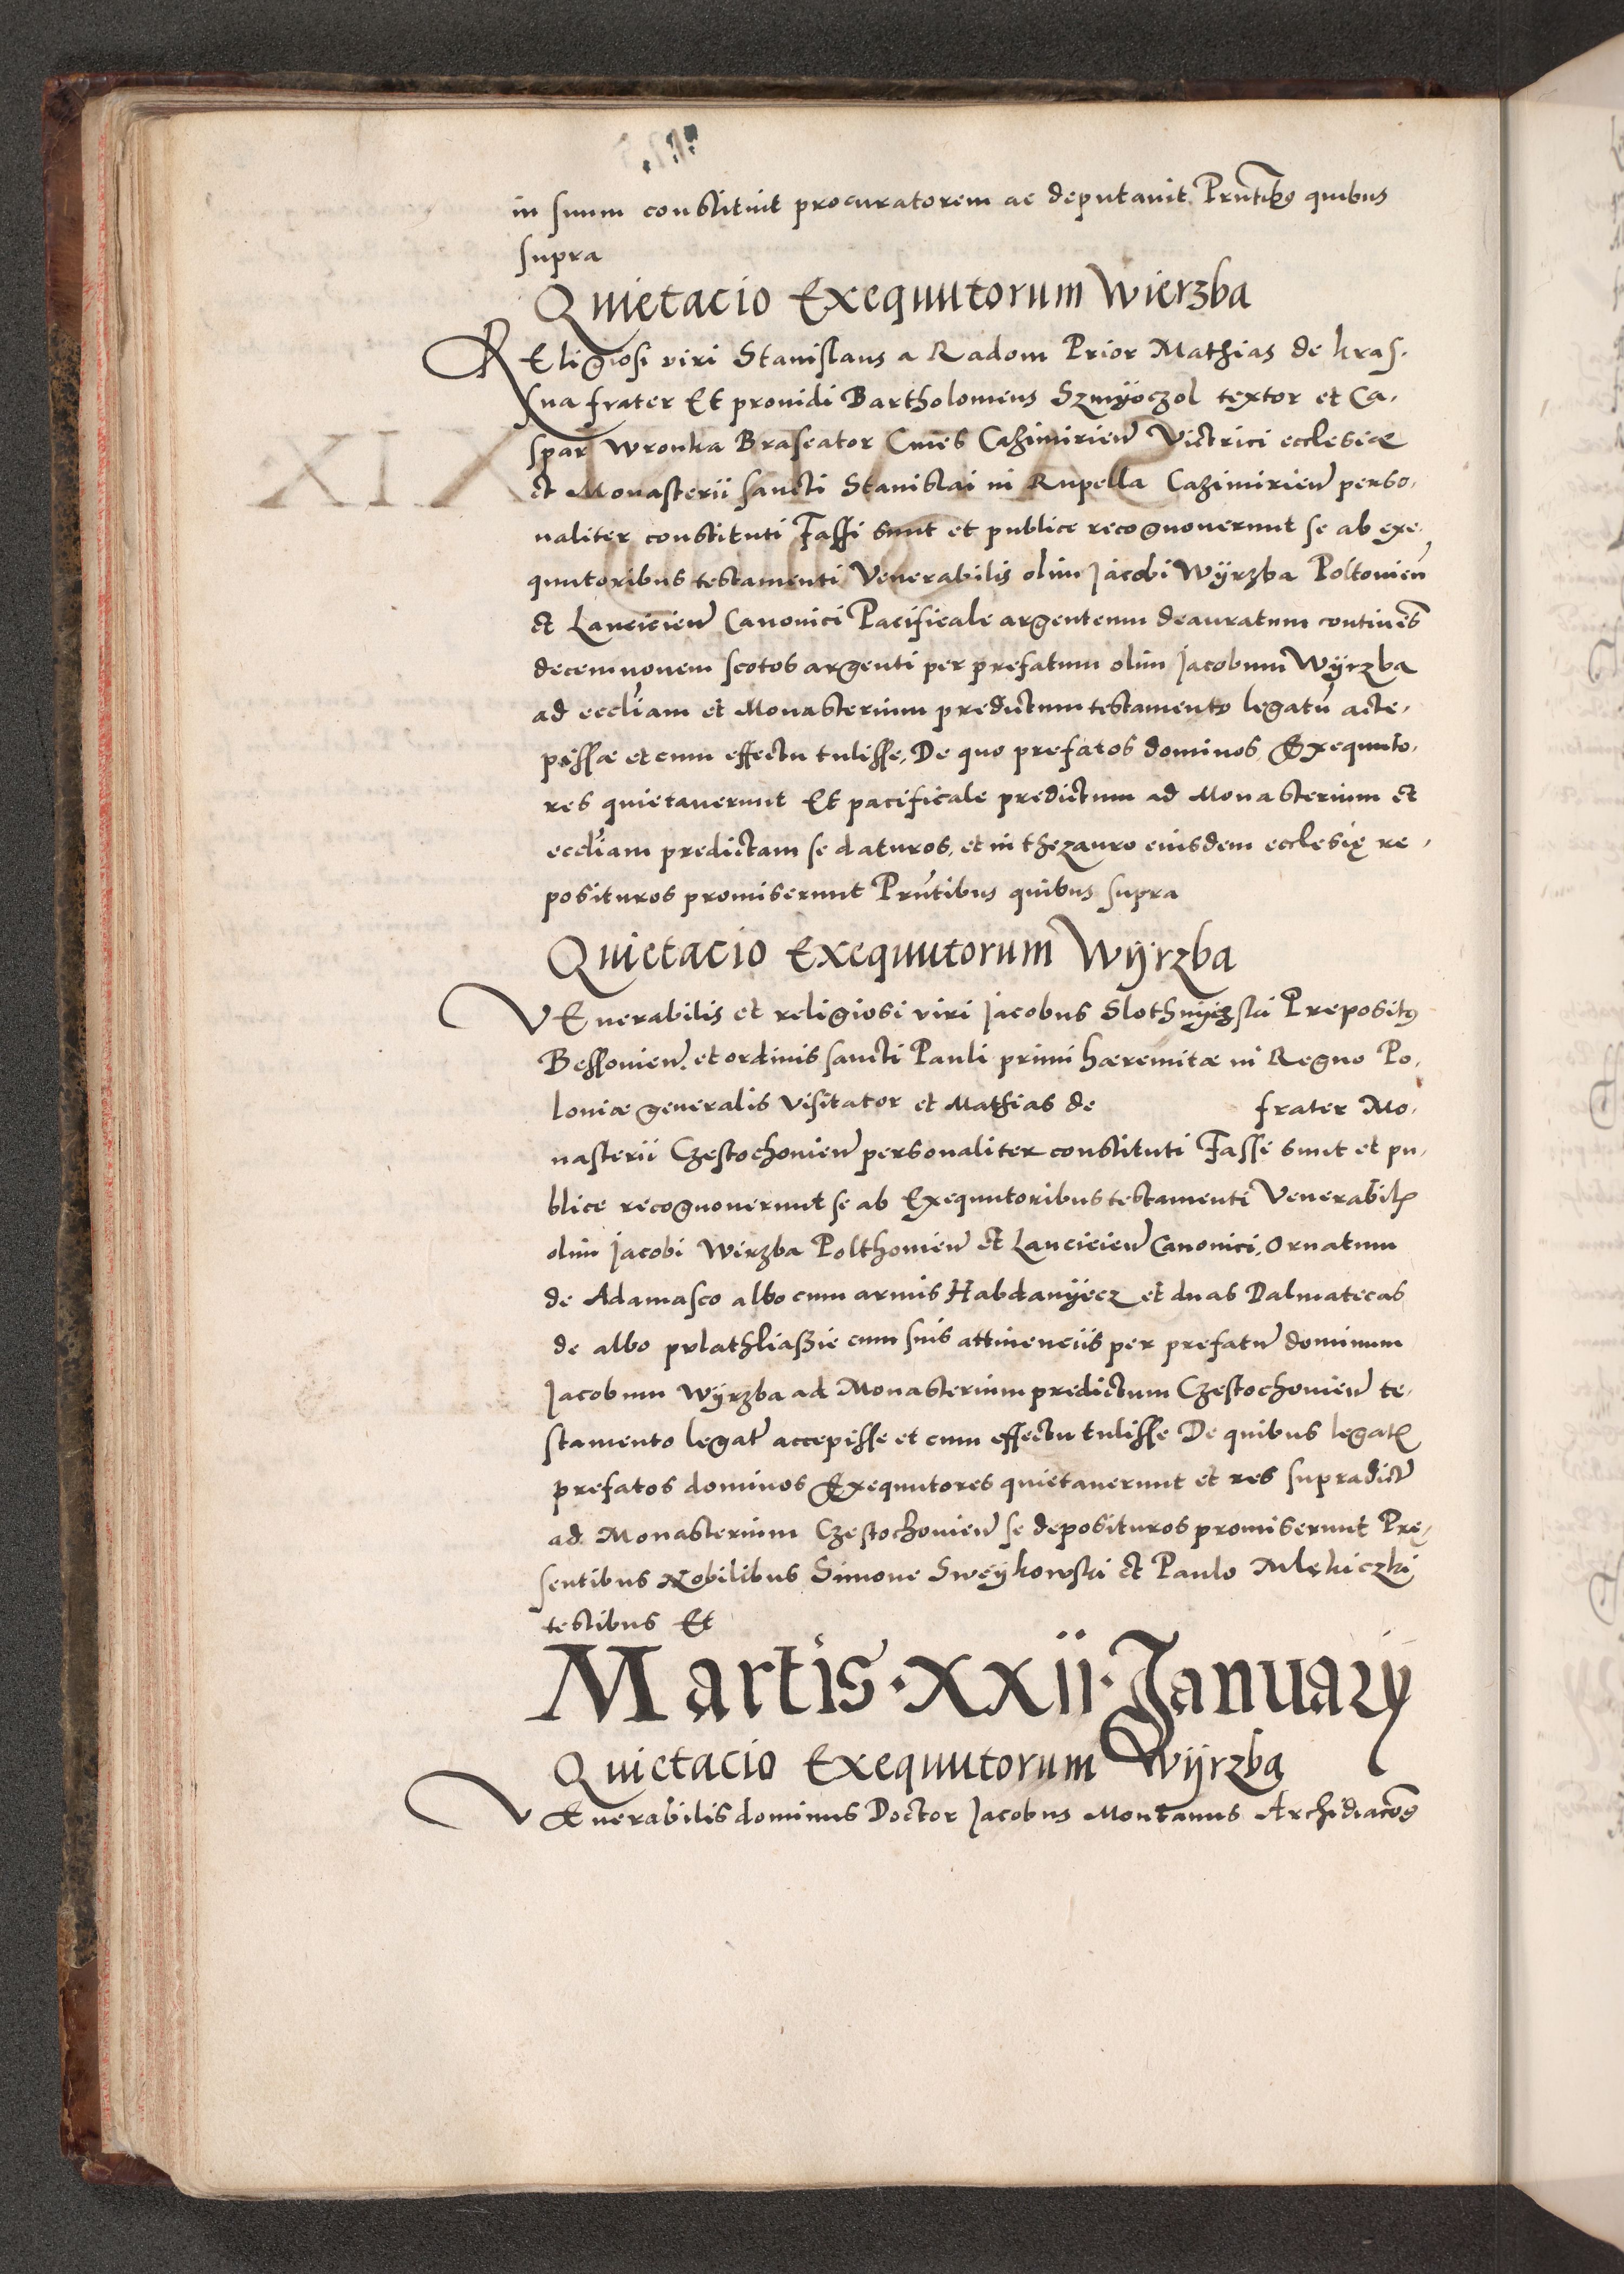 in suum constituit procuratorem ac deputavit Prntibꝰ quibus
supra
Quietacio Exequutorum Wierzba
REligiosi viri Stanislaus a Radom Prior Mathias de kras,
sna frater Et providi Bartholomeus Szmÿoczol textor et Ca,
spar Wronka Braseator Cives Cazimirien̄ Victrici ecclesiæ
et Monasterii sancti Stanislai in Rupella Cazimirien̄ perso,
naliter constituti Fassi sunt et publice recognoverunt se ab exe,
quutoribus testamenti Venerabilis olim Jacobi Wÿrzba Poltovien̄
et Lancicien̄ Canonici Pacificale argenteum deauratum continēs
decemnovem scotos argenti per prefatum olim Jacobum Wÿrzba
ad eccliam et Monasterium predictum testamento legatū acce,
pissæ et cum effectu tulisse, De quo prefatos dominos Exequuto,
res quietaverunt Et pacificale predictum ad Monasterium et
eccliam predictam se daturos, et in thezauro eiusdem ecclesię re,
posituros promiserunt Prntibus quibus supra
Quietacio Exequutorum Wÿrzba
VEnerabilis et religiosi viri Jacobus Slothnÿczski Prepositꝰ
Bessovien̄. et ordinis sancti Pauli primi hæremitæ in Regno Po,
loniæ generalis visitator et Mathias de frater Mo,
nasterii Czestochovien̄ personaliter constituti Fassi sunt et pu,
blice recognoverunt se ab Exequutoribus testamenti Venerabil
olim Jacobi Wirzba Polthovien̄ et Lancicien̄ Canonici, Ornatum
de Adamasco albo cum armis Habdanÿecz et duas Dalmatecas
de albo cum suis attinenciis per prefatū dominum
Jacobum Wÿrzba ad Monasterium predictum Czestochovien̄ te,
stamento legat accepisse et cum effectu tulisse De quibus legat
prefatos dominos Exequutores quietaverunt et res supradict
ad Monasterium Czestochovien̄ se deposituros promiserunt Prę,
sentibus Nobilibus Simone Sweÿkowski et Paulo Mlękiczki
testibus Et
Martis · xxii · Januarÿ
Quietacio Exequutorum Wÿrzba
VEnerabilis dominus Doctor Jacobus Montanus Archidiacoꝰ
XIX